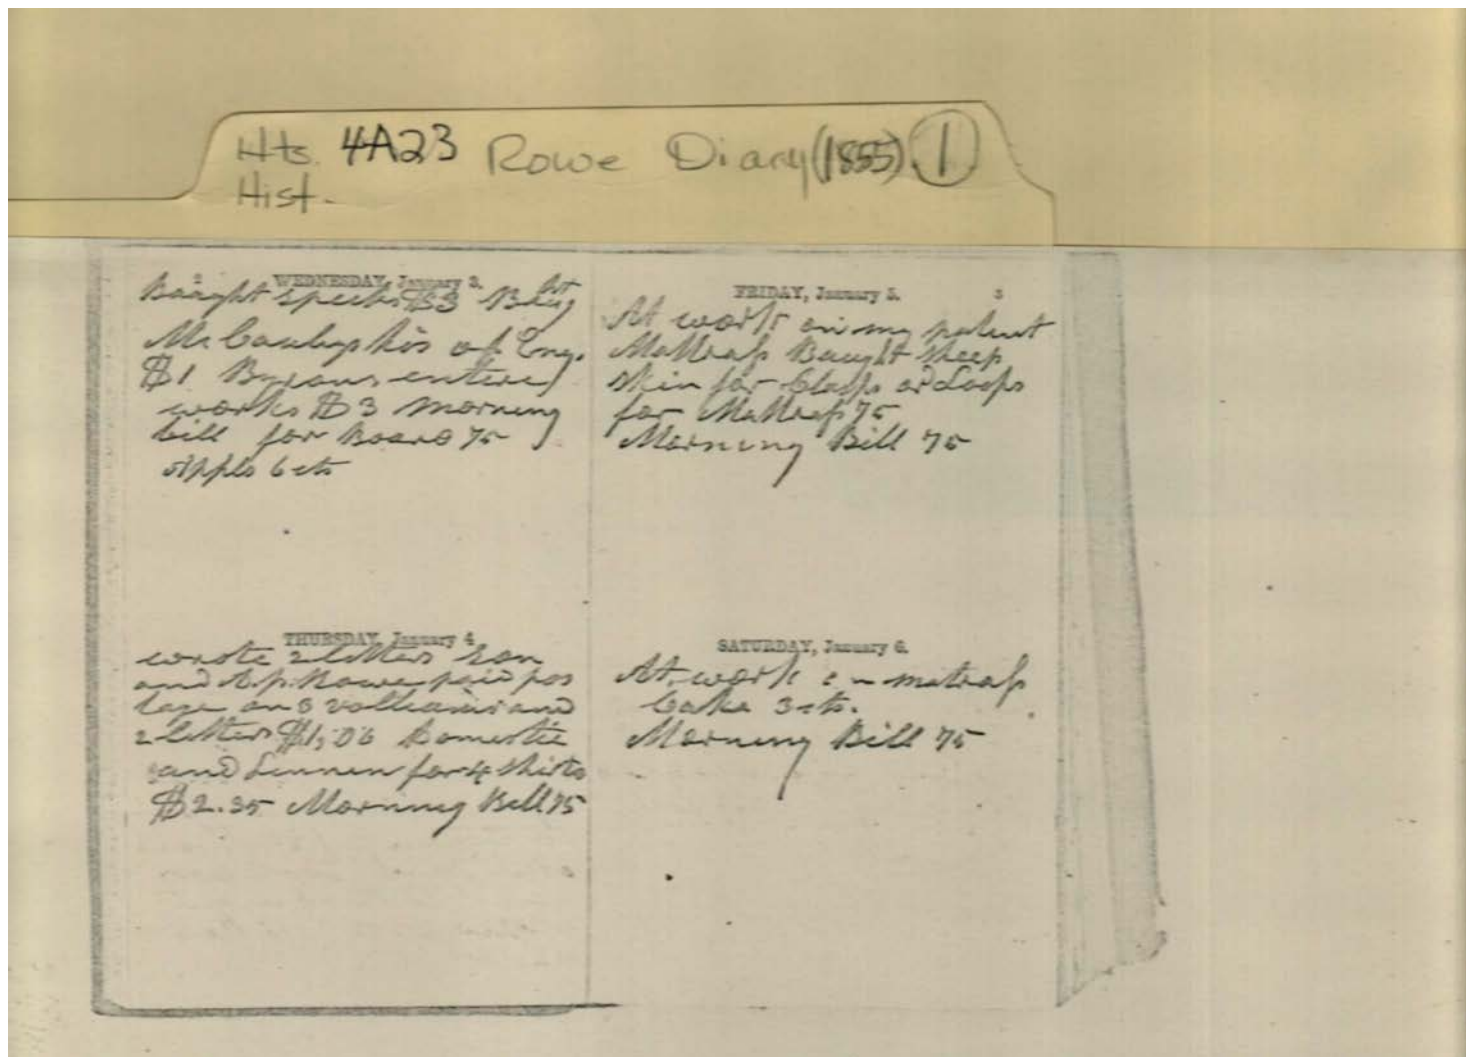 Hts. 4A23 Rowe Diary (1855) 1
Hist.
2
WEDNESDAY, January 3.
Baught specks $3
McCauleys his of Eng.
$1 Byrons entire
works $3 Morning
bill for Board 75
Apples 6 cts
THURSDAY, January 4
wrote 2 letters
and Rowe paid pos
tage on 3 and
2 letters $1,06 Domestic
and Linnen for 4 shirts
$2.35 Morning Bill 75
FRIDAY, January 5. 3
At work on my patent
Mattrass Baught sheep
skin for Clasps Loops
for Mattrass 75
Morning Bill 75
SATURDAY, January 6.
At work on matrass
Cake 3 cts.
Morning Bill 75